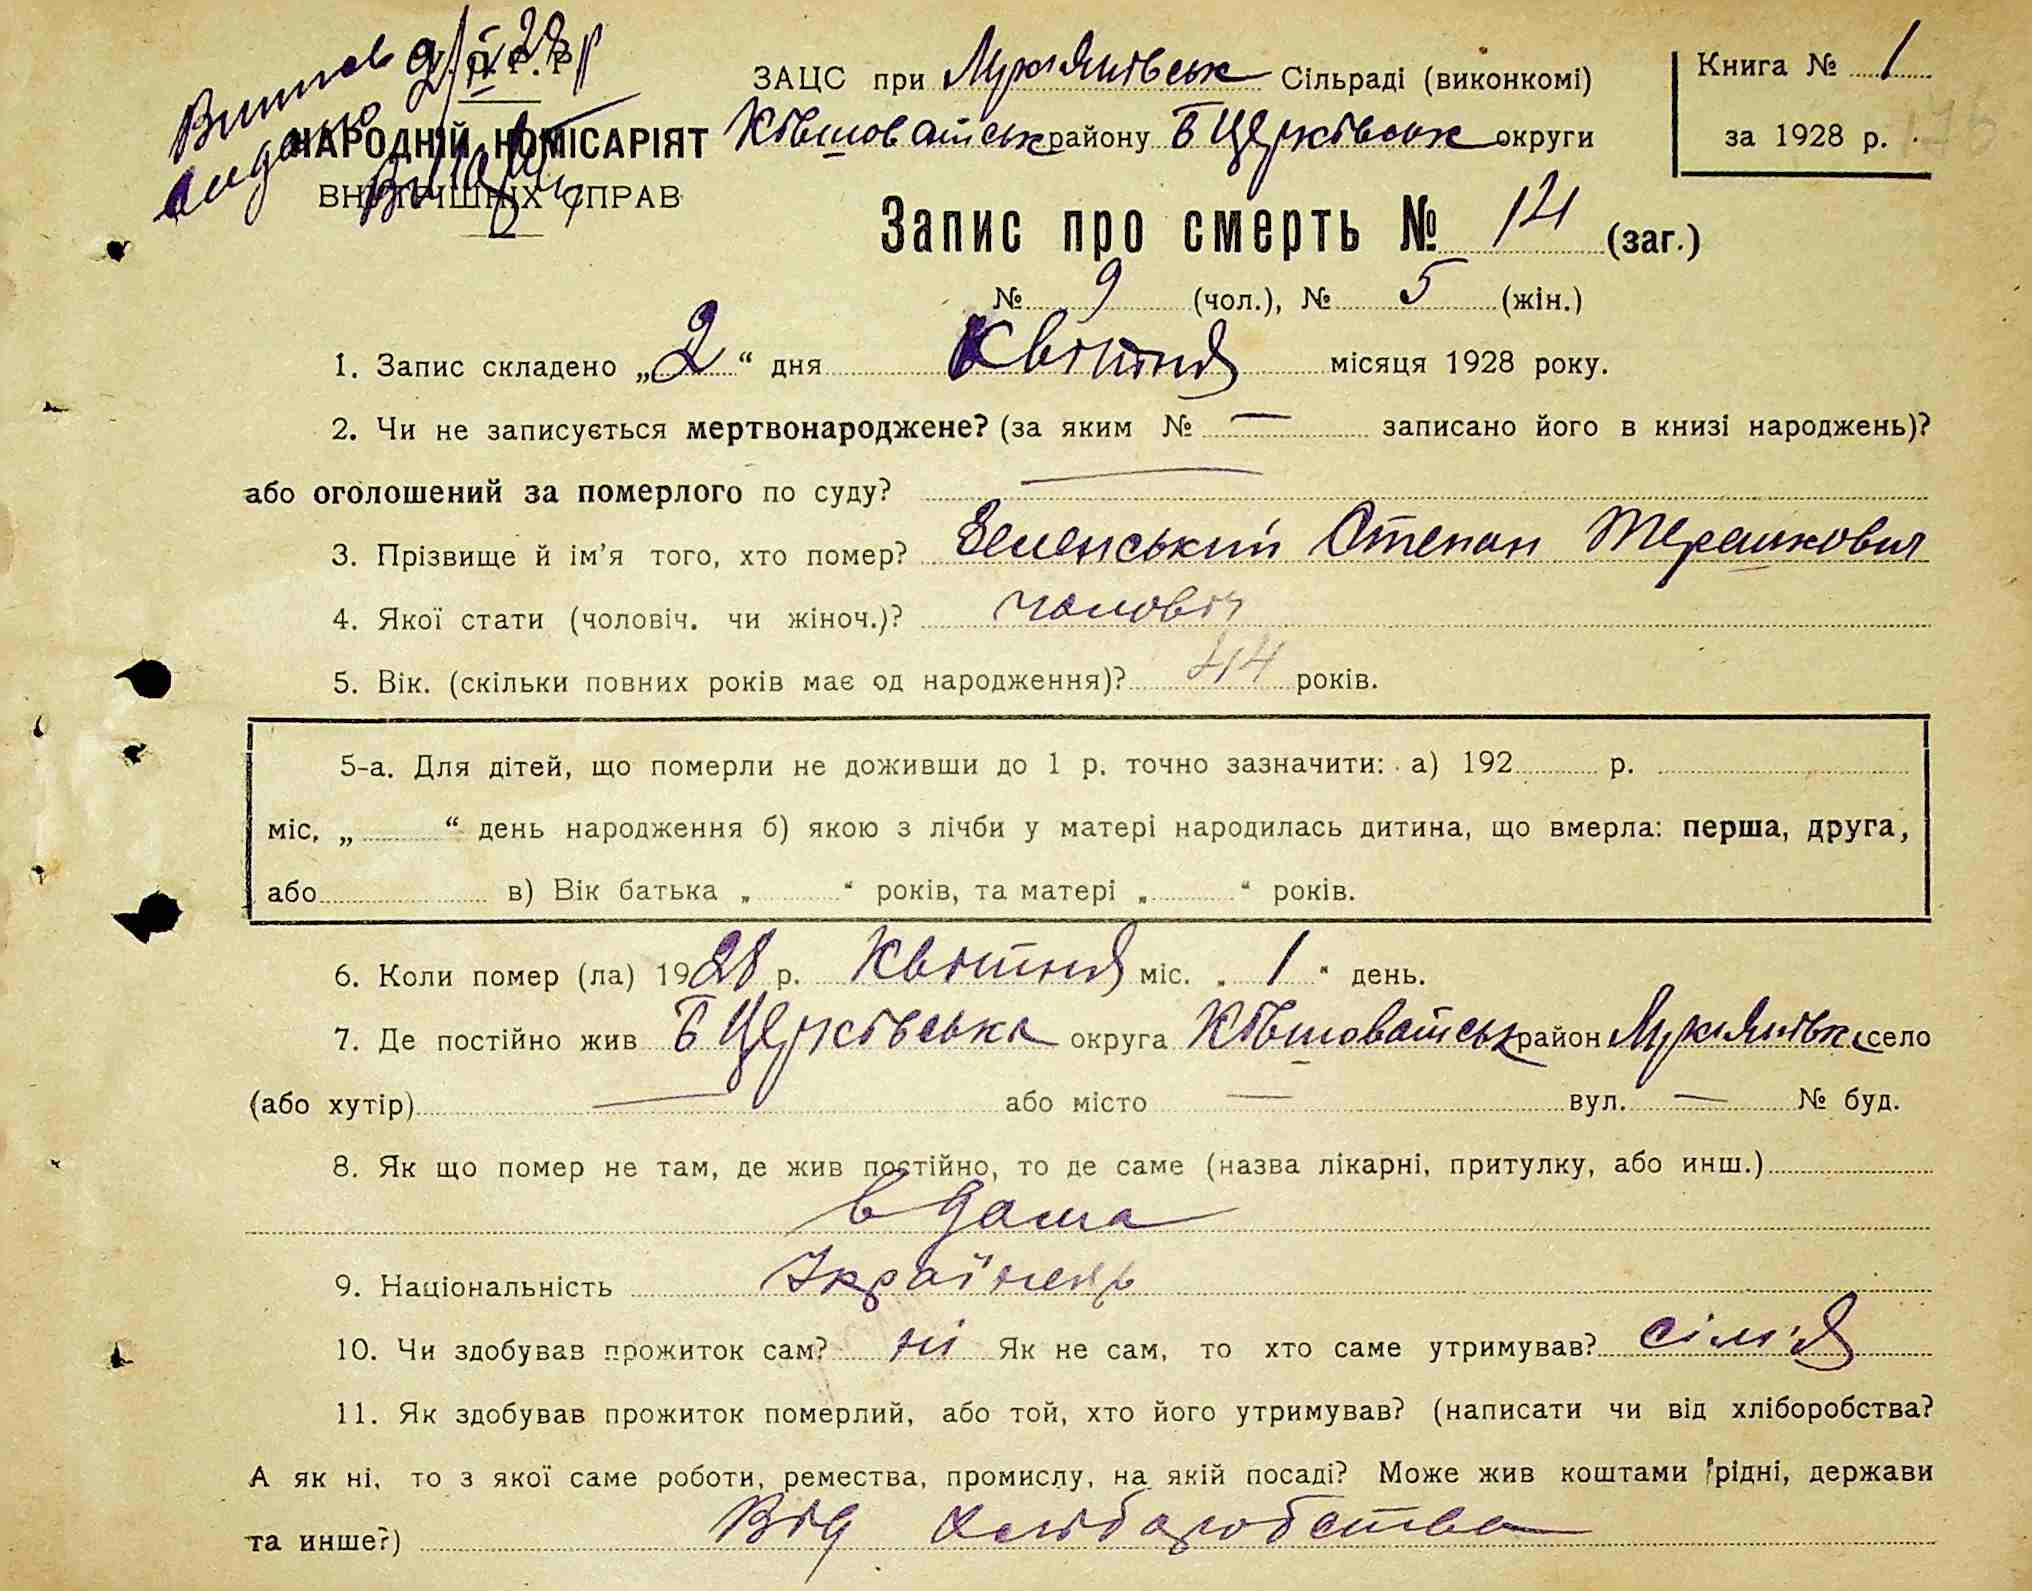 Витяг
видано 2/IV 28 р
У.С.Р.Р
НАРОДНІЙ КОМІСАРІЯТ
ВНУТРІШНІХ СПРАВ
ЗАЦС при Лук'янівськ Сільраді (виконкомі)
Ківшоватськ району Б Церківськ округи
Книга № 1
за 1928 р.
176
Запис про смерть № 14 (заг.)
№ 9 (чол.), № 5 (жін.)
1. Запис складено „2“ дня Квітня місяця 1928 року.
2. Чи не записується мертвонароджене? (за яким № — записано його в книзі народжень)?
або оголошений за померлого по суду? —
3. Прізвище й ім'я того, хто помер? Зеленський Степан Терешкович
4. Якої стати (чоловіч. чи жіноч.)? чоловіч
5. Вік. (скільки повних років має од народження)? 44 років.
5-а. Для дітей, що померли не доживши до 1 р. точно зазначити: а) 192 р.
міс. „ “ день народження б) якою з лічби у матері народилась дитина, що вмерла: перша, друга,
або в) Вік батька „ “ років, та матері „ “ років.
6. Коли помер (ла) 1928 р. Квітня міс. „1“ день.
7. Де постійно жив Б Церківська округа Ківшоватськ район Лук'янівка село
(або хутір) — або місто — вул. — № буд.
8. Як що помер не там, де жив постійно, то де саме (назва лікарні, притулку, або инш.)
в дома
9. Національність Українець
10. Чи здобував прожиток сам? ні Як не сам, то хто саме утримував? сім'я
11. Як здобував прожиток померлий, або той, хто його утримував? (написати чи від хліборобства?
А як ні, то з якої саме роботи, ремества, промислу, на якій посаді? Може жив коштами рідні, держави
та инше?) Від хліборобства